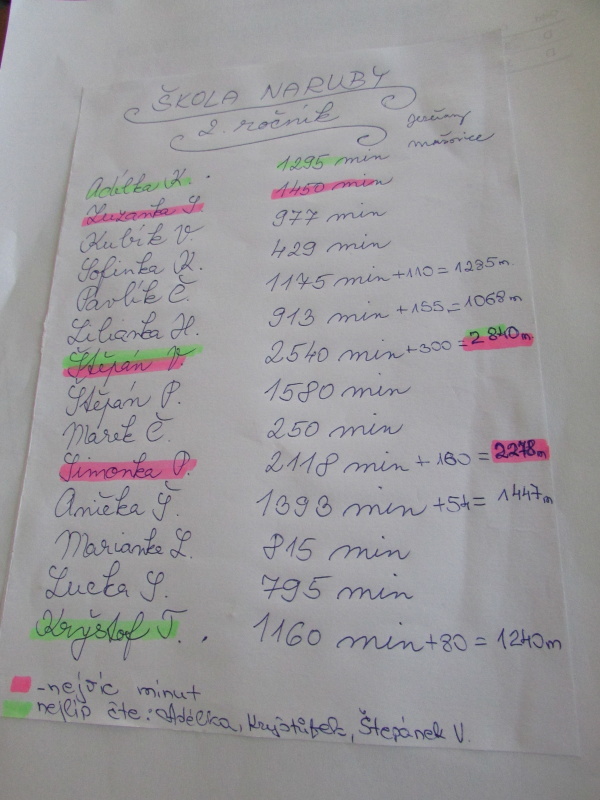 ŠKOLA NARUBY
2. ročník
Adélka K. 1295 min
Zuzanka S. 1450 min
Kubík V. 977 min
Sofinka K. 429 min
Pavlík Č. 1175 min +110 = 1285 m
Lilianka H. 913 min +155 = 1068 m
Štěpán V. 2540 min +300 = 2840 m
Štěpán P. 1580 min
Márek Č. 250 min
Simonka P. 2118 min + 160 = 2278 m
Anička Š. 1393 min +54 = 1447 m
Marianka L. 815 min
Lucka S. 795 min
Kryštof T. 1160 min +80 = 1240 m
-nejvíc minut
nejlíp čte: Adélka, Kryštůfek, Štěpánek V.